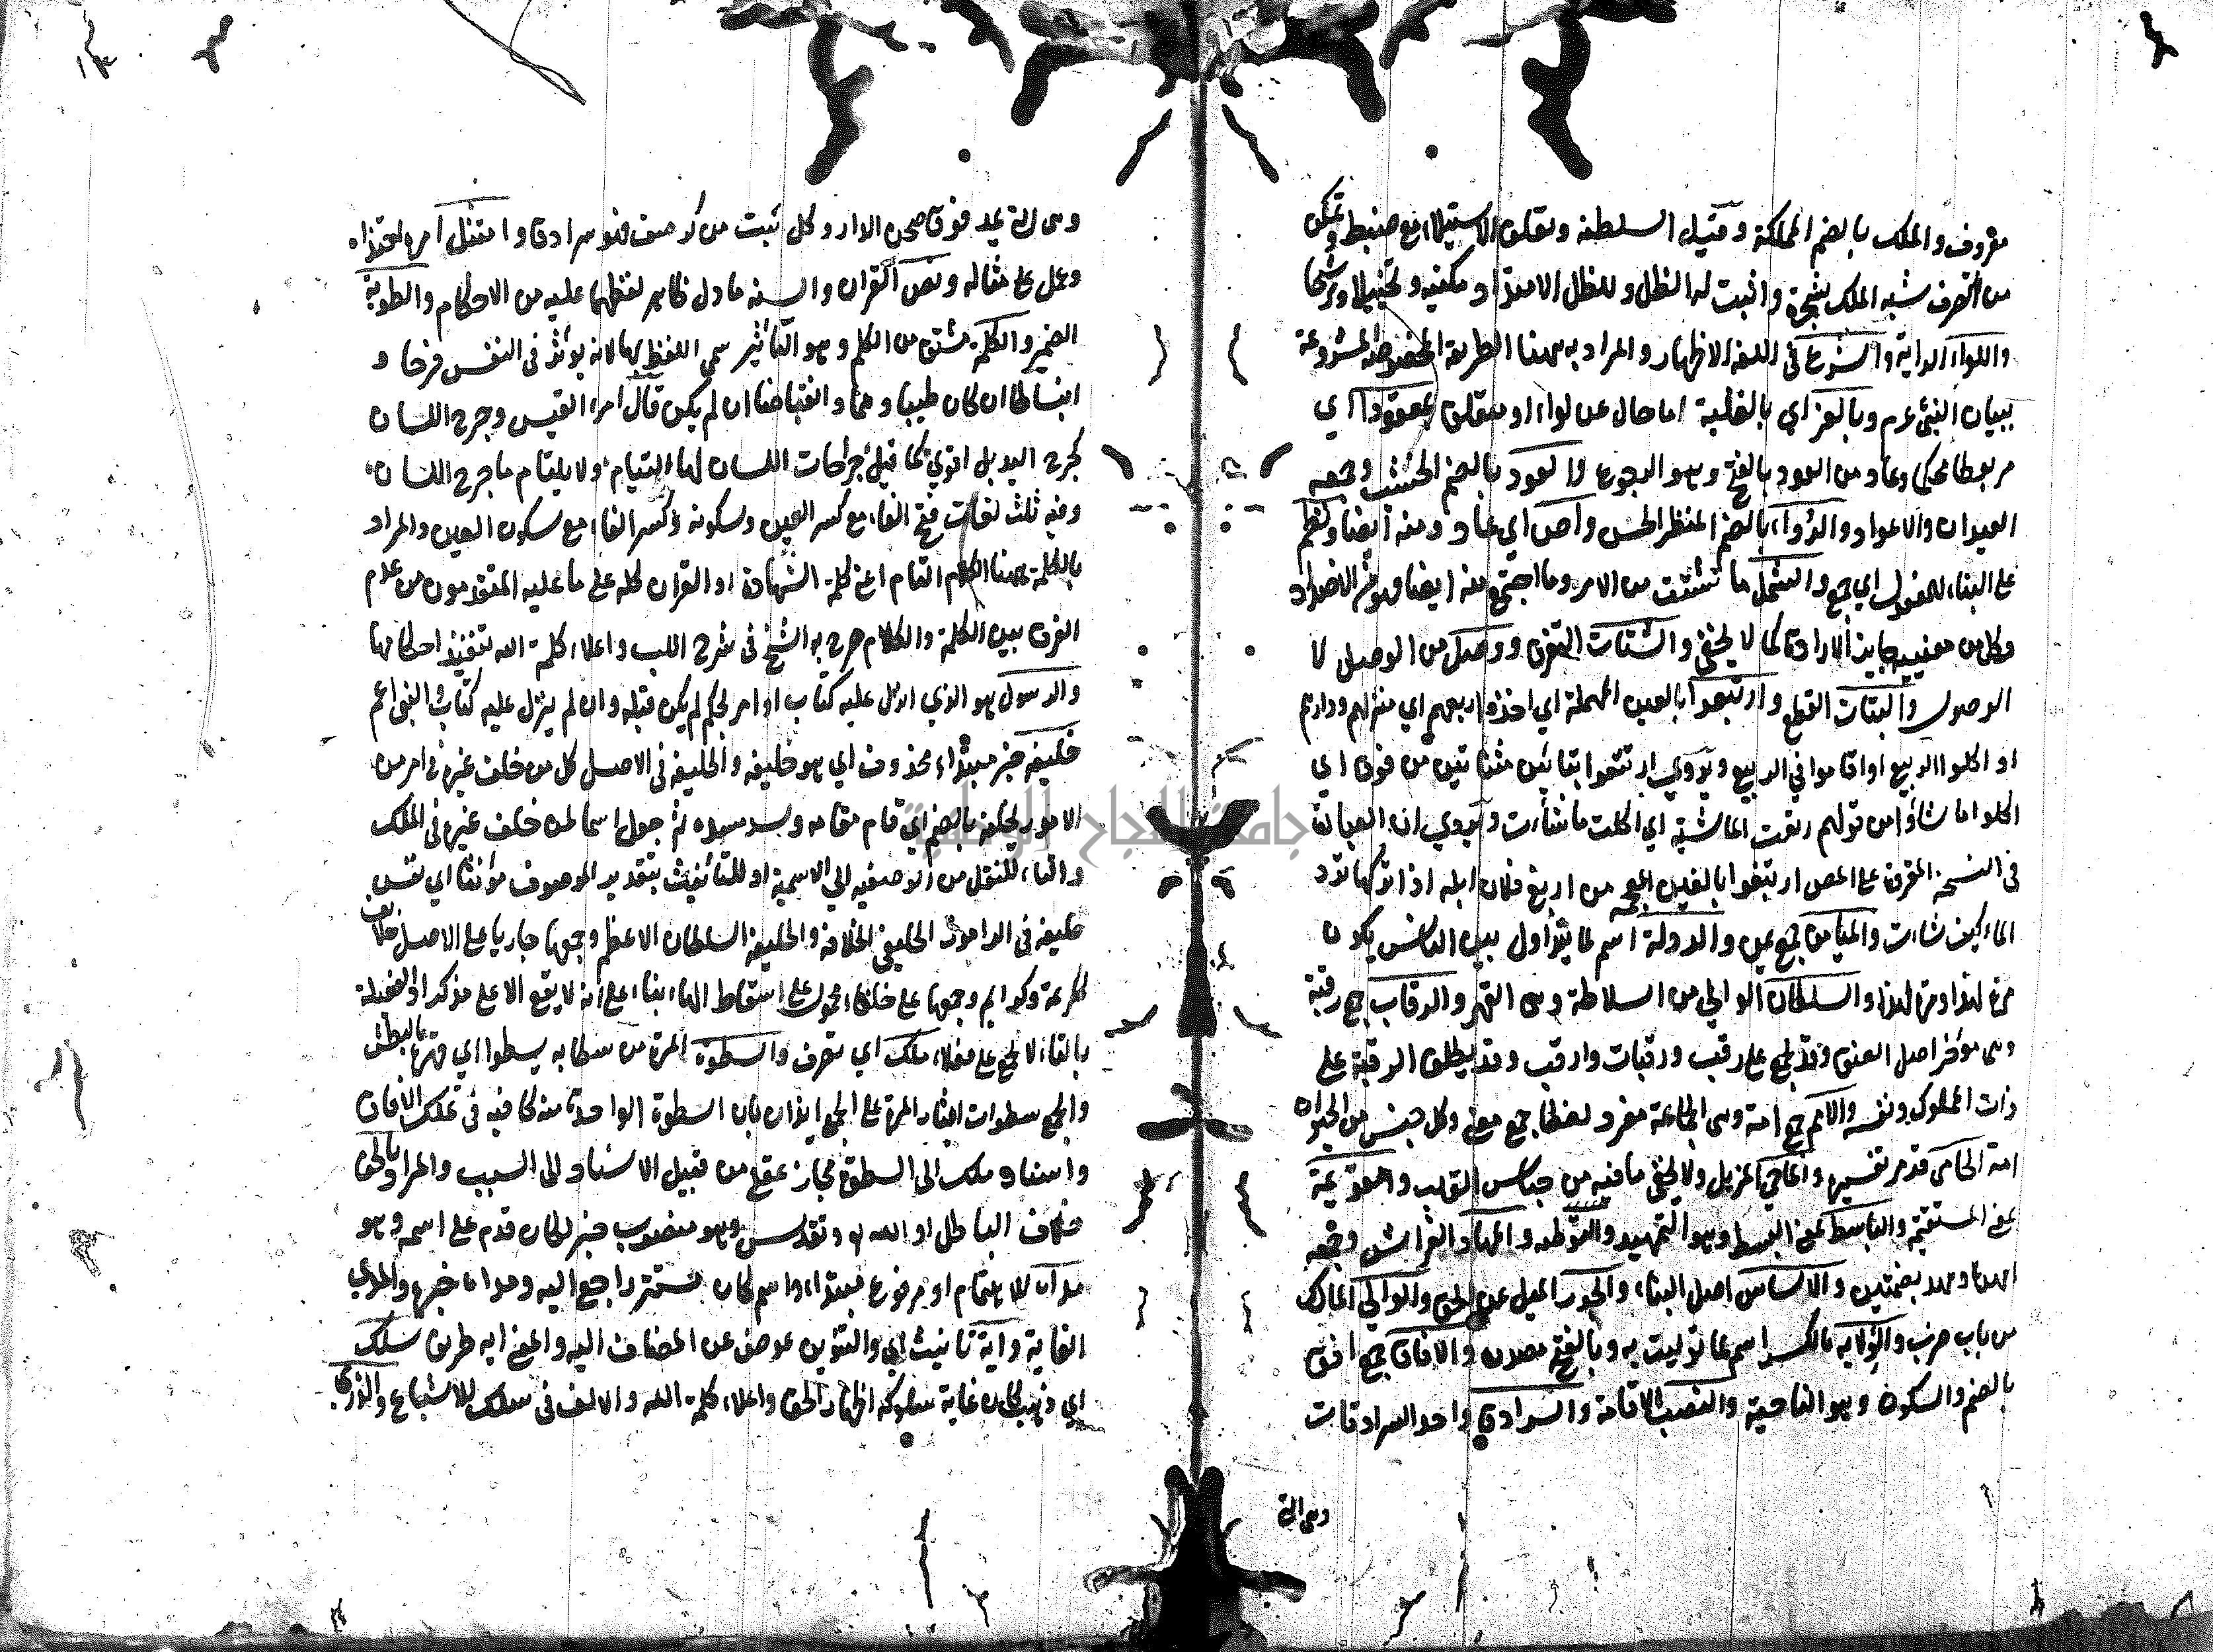 معروف والملك بالضم المملكة وقيل السلطنة وتعلق الاستيلاء مع ضبط وتمكن
من التصرف شبه الملك بشجرة واثبت له الظل وللظل الامتداد مكنية وتخييلا وترشيحا
واللواء الراية والشرع في اللغة الاظهار والمراد به ههنا الطريقة المخصوصة المشروعة
ببيان النبي عم وبالعز اي بالغلبة اما حال عن لواء او متعلق بمعقودا اي
مربوطا محكما وعاد من العود بالفتح وهو الرجوع والعود بالضم الخشب وجمعه
العيدان والاعواد والرواء بالضم المنظر الحسن واض اي عاد ومنه ايضا ونظم
على البناء للمفعول اي جمع والشمل ما تشتت من الامر وما اجتمع منه ايضا فهو من الاضداد
وكل من معنييه جايز الارادة كما لا يخفى والشتات التفرق ووصل من الوصل لا
الوصول والبتات القطع وارتبعوا بالعين المهملة اي اخذوا ربعهم اي منزلهم ودارهم
او اكلوا الربيع او اقاموا في الربيع ويروى ارتتعوا بتائين مثناتين من فوق اي
اكلوا ما شاؤا من قولهم رتعت الماشية اي اكلت ما شاءت ويروى ان العبارة
في النسخة المقروة على المص ارتبغوا بالغين المعجمة من اربغ فلان ابله اذا تركها ترد
الماء كيف شاءت والميامن جمع يمن والدولة اسم لما يتداول بين الناس يكون
مرة لهذا ومرة لهذا والسلطان الوالي من السلاطة وهي القهر والرقاب جمع رقبة
وهي مؤخر اصل العنق وقد يجمع على رقب ورقبات وارقب وقد يطلق الرقبة على
ذات المملوك ونفسه والامم جمع امة وهي الجماعة مفرد لفظا جمع معنى وكل جنس من الحيوان
امة الحامي قد مر تفسيره والماحي المزيل ولا يخفى ما فيه من جناس القلب والقويمة
بمعنى المستقيم والباسط بمعنى البسط وهو التمهيد والتوطئة والمهاد الفراش وجمعه
امهدة ومهد بضمتين والاساس اصل البناء والجور الميل عن الحق والوالي المالك
من باب ضرب والولاية بالكسر اسم لما توليت به وبالفتح مصدر والافاق جمع افق
بالضم والسكون وهو الناحية والنصب الاقامة والسرادق واحد السرادقات
وهي التي
١٣
وهي التي تمد فوق صحن الدار وكل بيت من كرسف فهو سرادق وامتثل امره احتذاه
وعمل على مثاله ونص القران والسنة ما دل ظاهر لفظهما عليه من الاحكام والطوية
الضمير والكلمة مشتق من الكلم وهو التأثير سمي اللفظ بها لانه يؤثر في النفس فرحا و
انبساطا ان كان طيبا وهما وانقباضا ان لم يكن قال امرء القيس وجرح اللسان
كجرح اليد بل اقوى كما قيل جراحات اللسان لها التيام ولا يلتام ما جرح اللسان
وفيه ثلث لغات فتح الفاء مع كسر العين وسكونه وكسر الفاء مع سكون العين والمراد
بالكلمة ههنا الكلام التام اعني كلمة الشهادة او القران كله على ما عليه المتقدمون من عدم
الفرق بين الكلمة والكلام صرح به الشيخ في شرح اللب واعلاء كلمة الله تنفيذ احكامها
والرسول هو الذي انزل عليه كتاب او امر بحكم لم يكن قبله وان لم ينزل عليه كتاب والنبي اعم
خليفة خبر مبتداء محذوف اي هو خليفة والخليفة في الاصل كل من خلف غيره في امر من
الامور يخلفه بالضم اي قام مقامه وسد مسده ثم جعل اسما لمن خلف غيره في الملك
والتاء للنقل من الوصفية الى الاسمية او للتأنيث بتقدير الموصوف مؤنثا اي نفس
خليفة في الراموز الخليفى الخلافة والخليفة السلطان الاعظم وجمعها جاريا على الاصل خلائف
ككريمة وكرايم وجمعها على خلفاء محمول على اسقاط الهاء بناء على انه لا يقع الا على مذكر اذ الفعيلة
بالتاء لا يجمع على فعلاء ملك اي تصرف والسطوة المرة من سطا به يسطوا اي قهره بالبطش
والجمع سطوات ايثار المرة على الجمع ايذان بان السطوة الواحدة منه كافية في تملك الافاق
واسناد ملك الى السطوة مجاز عقلي من قبيل الاسناد الى السبب والمراد بالحق
خلاف الباطل او الله وتقدس وهو منصوب خبر لكان قدم على اسمه وهو
مداه للاهتمام او مرفوع مبتداء واسم كان مستتر راجع اليه ومداه خبره والمدي
الغاية واية تانيث اي والتنوين عوض عن المضاف اليه والمعنى اية طريق سلك
اي ذهب كان غاية سلوكه اظهار الحق واعلاء كلمة الله والالف في سلك للاشباع والذرى